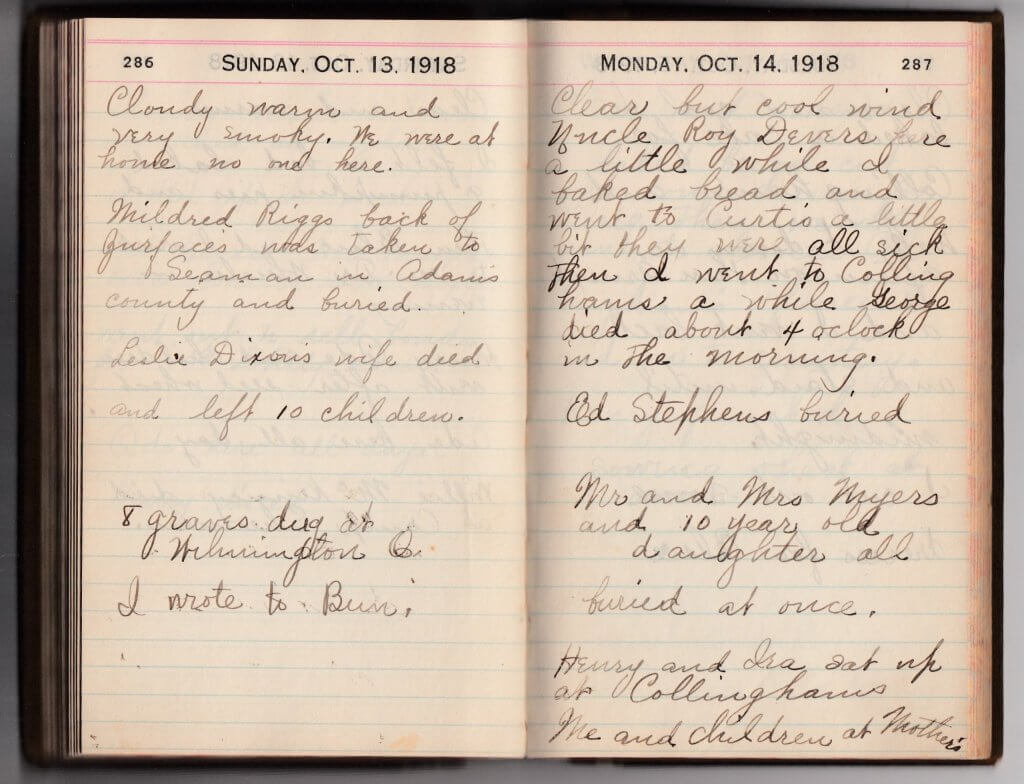 286
SUNDAY, OCT. 13, 1918
Cloudy warm and
very smoky. We were at
home no one here.
Mildred Riggs back of
Surfaces was taken to
Seaman in Adams
county and buried.
Leslie Dixons wife died
and left 10 children.
8 graves dug at
Wilmington O.
I wrote to Bun.
MONDAY, OCT. 14, 1918
287
Clear but cool wind
Uncle Roy Devers here
a little while I
baked bread and
went to Curtis a little
bit they were all sick
then I went to Colling
hams a while George
died about 4 oclock
in the morning.
Ed Stephens buried
Mr and Mrs Myers
and 10 year old
daughter all
buried at once.
Henry and Ira sat up
at Collinghams
Me and children at Mother's